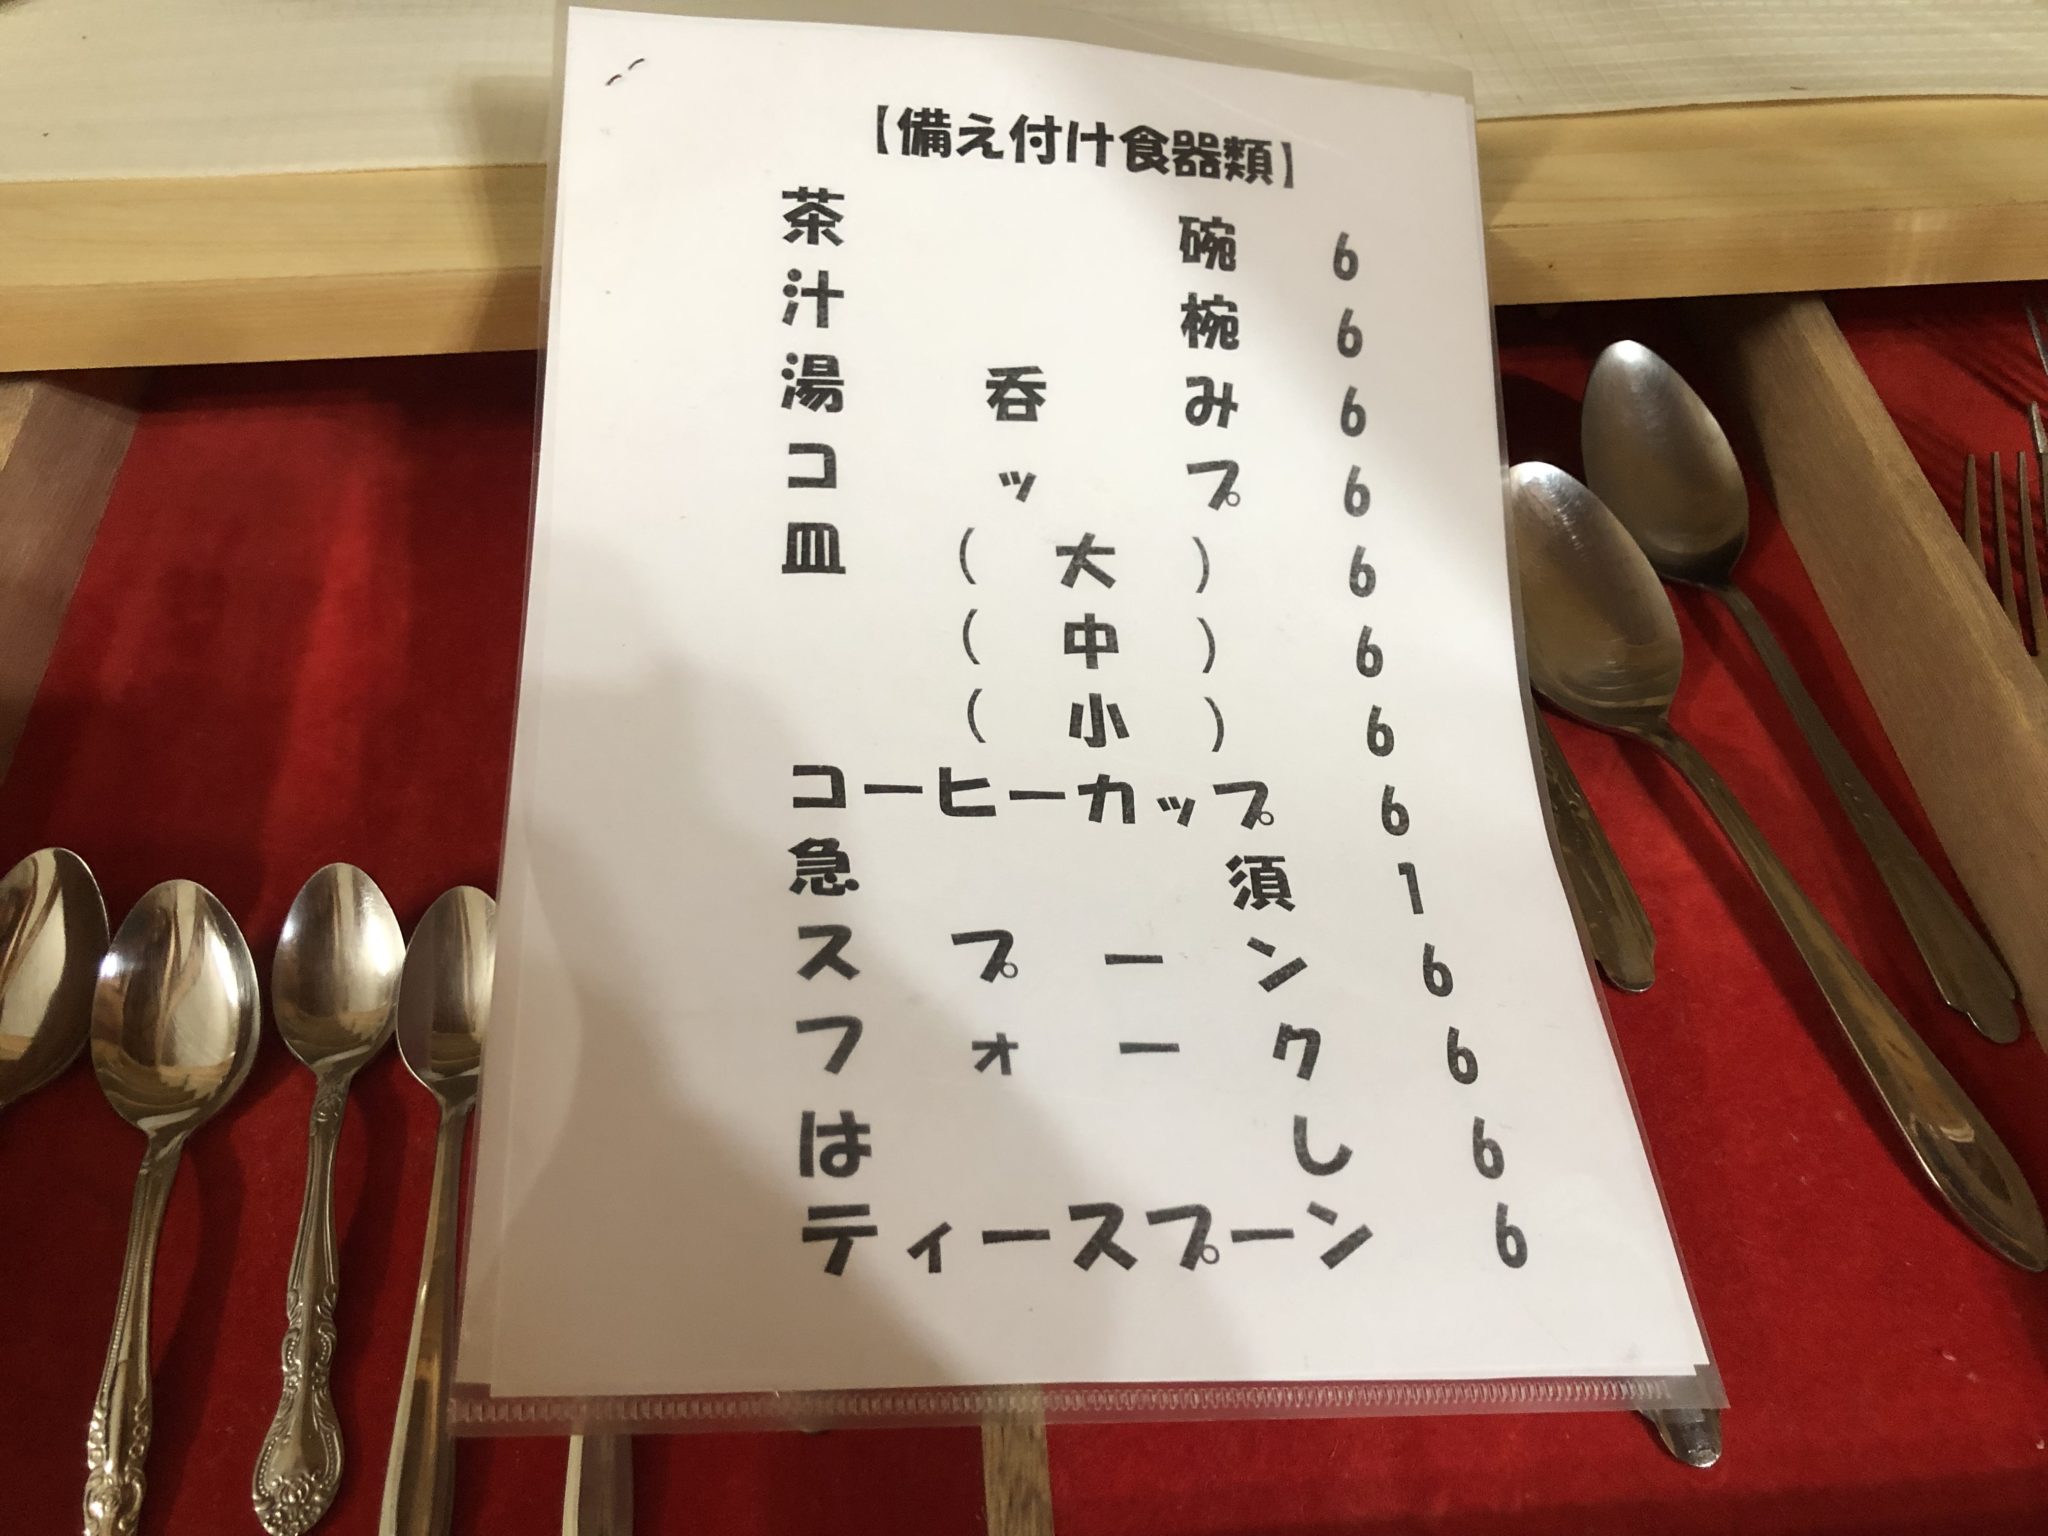 【備え付け食器類】
茶碗 6
汁椀 6
湯呑み 6
コップ 6
皿(大) 6
(中) 6
(小) 6
コーヒーカップ 6
急須 1
スプーン 6
フォーク 6
はし 6
ティースプーン 6